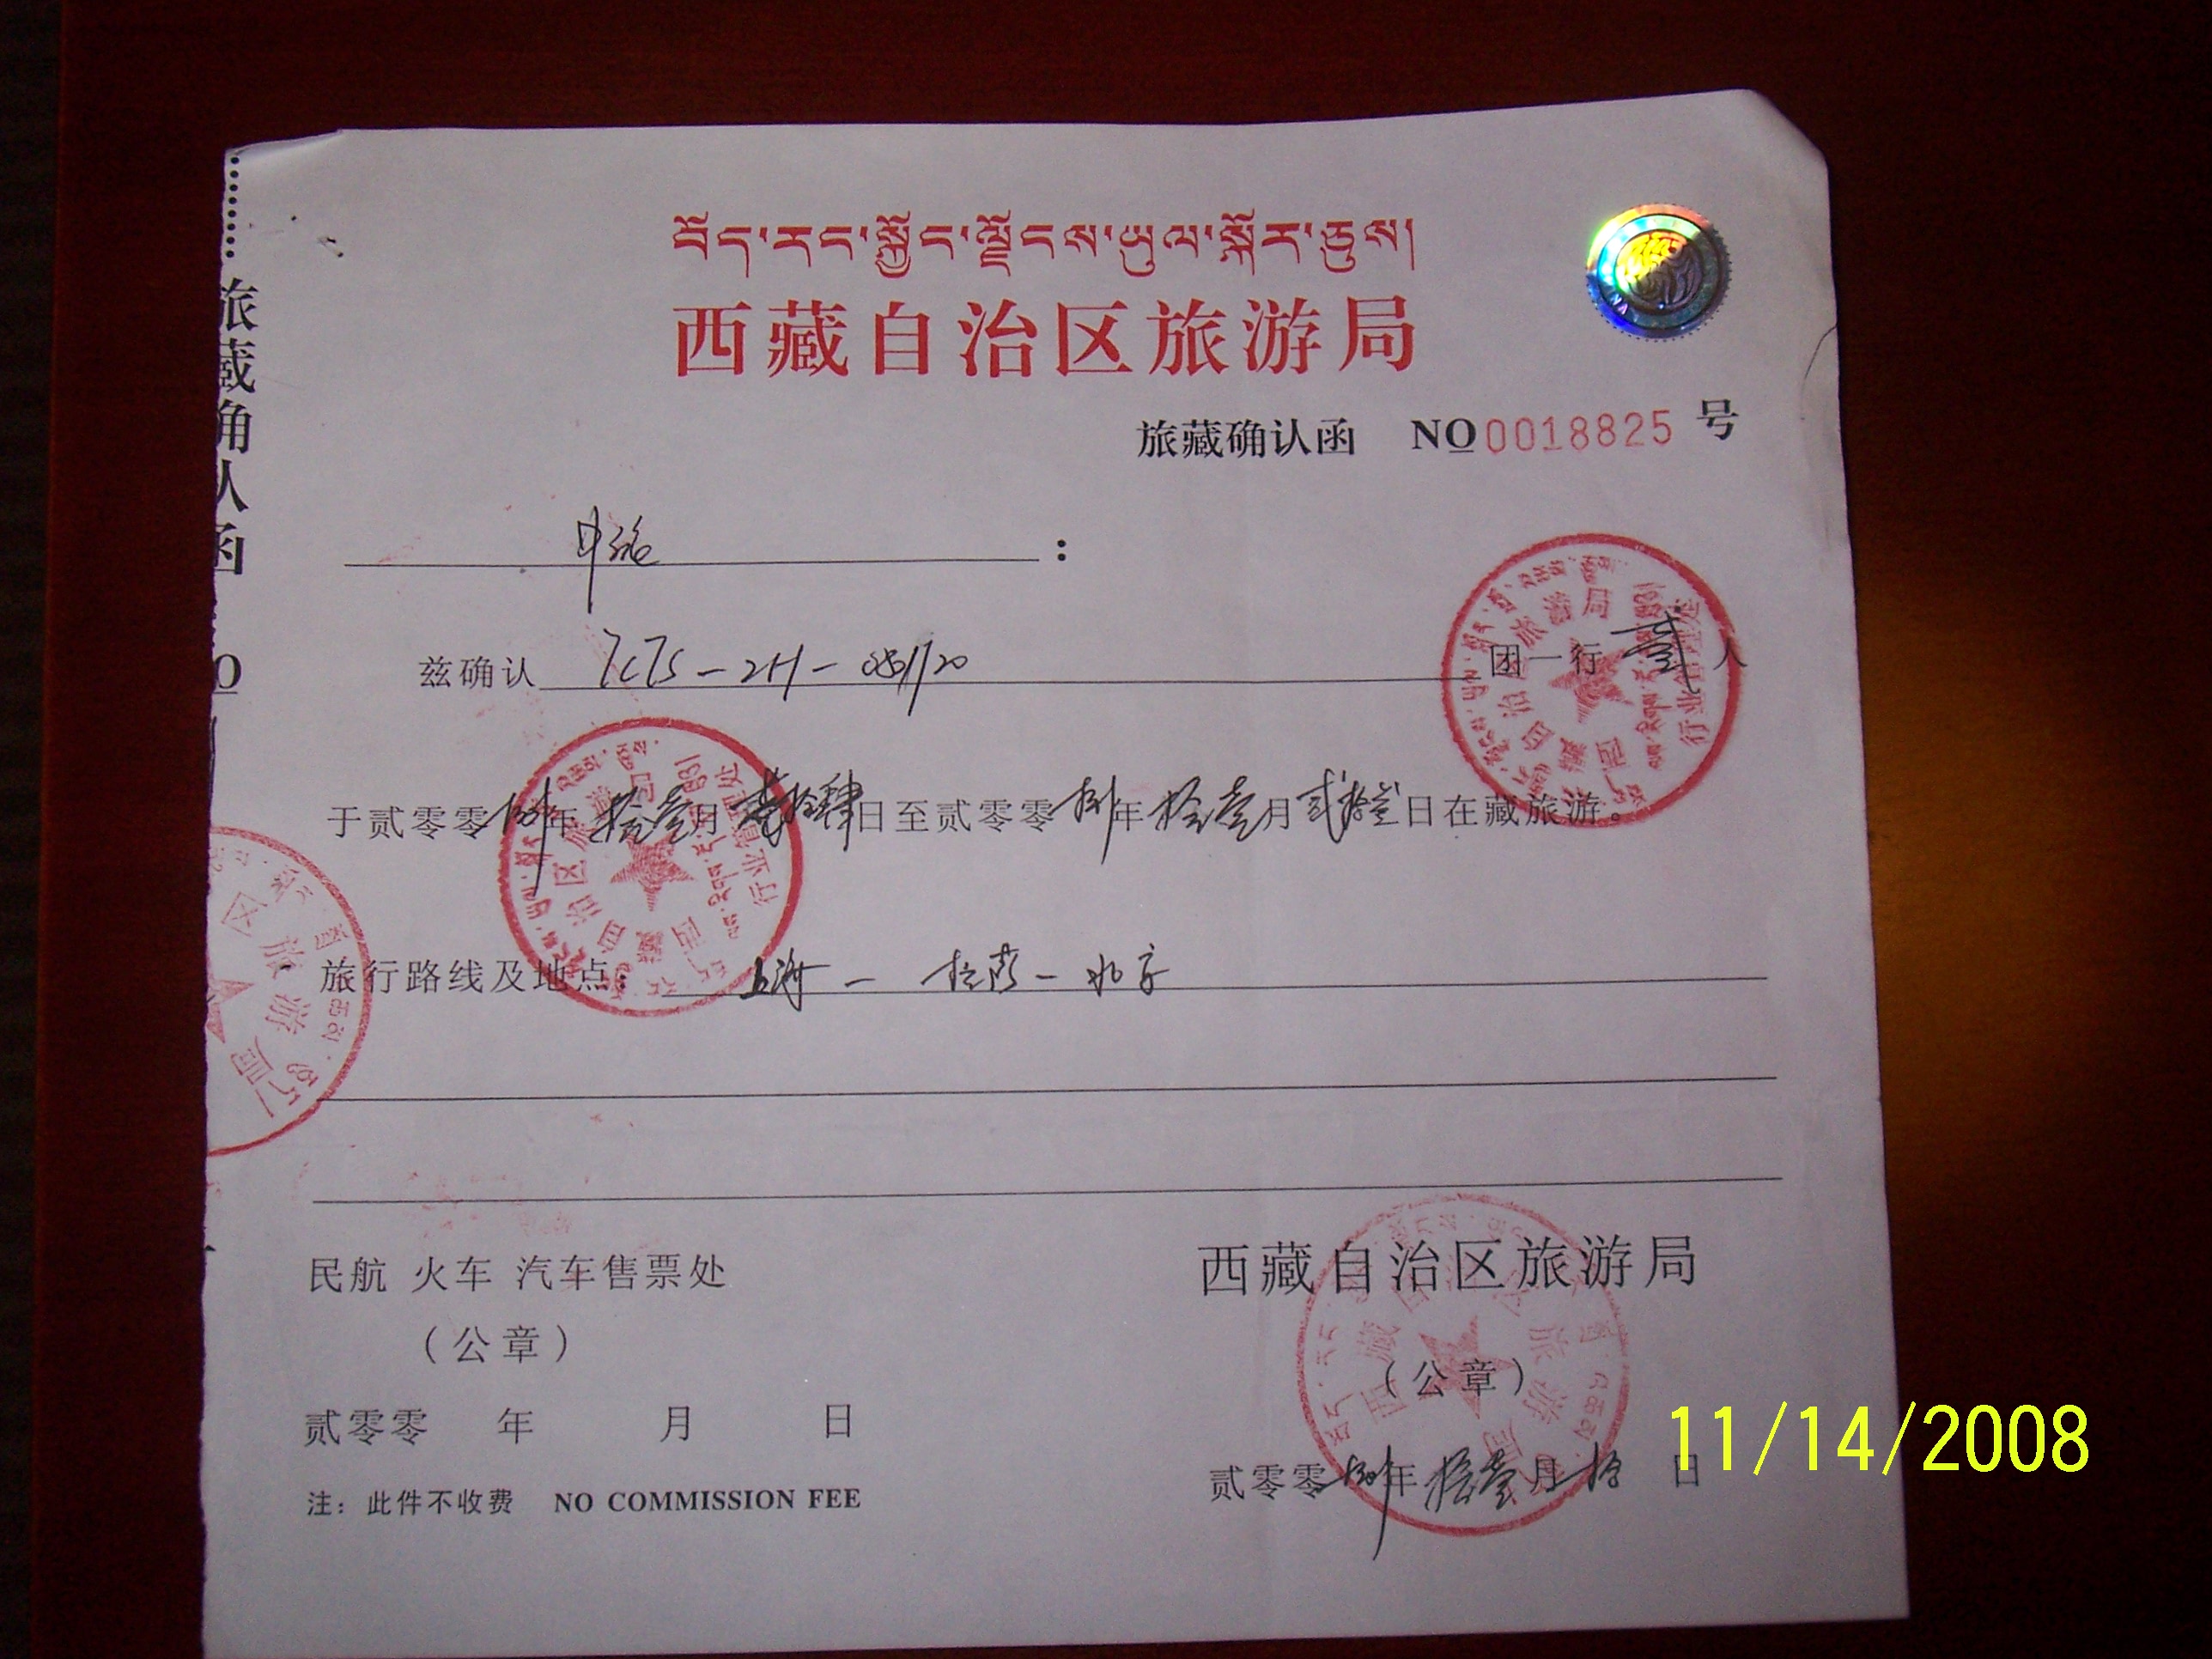 བོད་རང་སྐྱོང་ལྗོངས་ཡུལ་སྐོར་ཅུས།
西藏自治区旅游局
旅藏确认函 NO 0018825 号
:
兹确认 团一行 贰 人
于贰零零捌年拾壹月壹拾肆日至贰零零捌年拾壹月贰拾 日在藏旅游。
旅行路线及地点: 上海 — 拉萨 — 北京
民航 火车 汽车售票处
(公章)
贰零零 年 月 日
注: 此件不收费 NO COMMISSION FEE
西藏自治区旅游局
(公章)
贰零零捌年拾壹月拾 日
旅藏确认函
11/14/2008